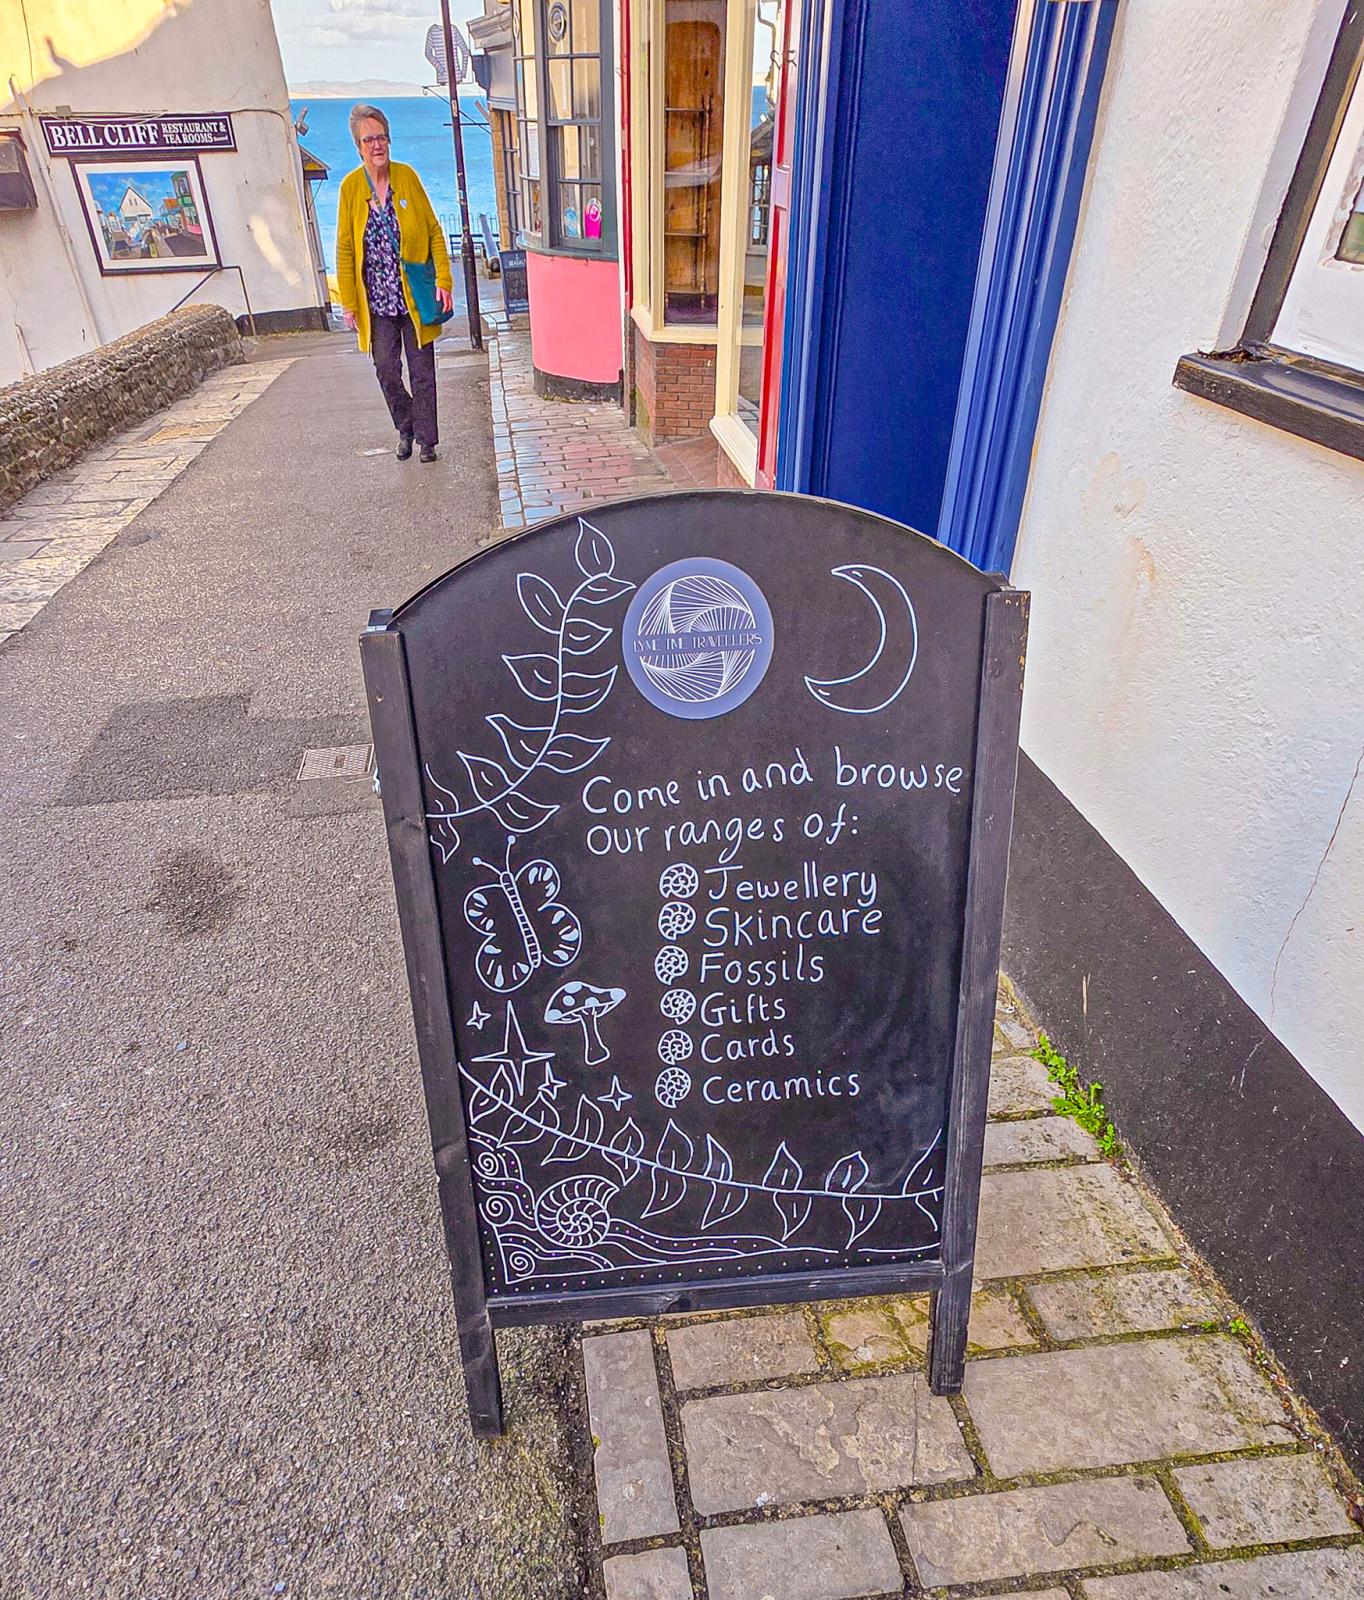 BELL CLIFF RESTAURANT &
TEA ROOMS
LYME TIME TRAVELLERS
Come in and browse
our ranges of:
Jewellery
Skincare
Fossils
Gifts
Cards
Ceramics